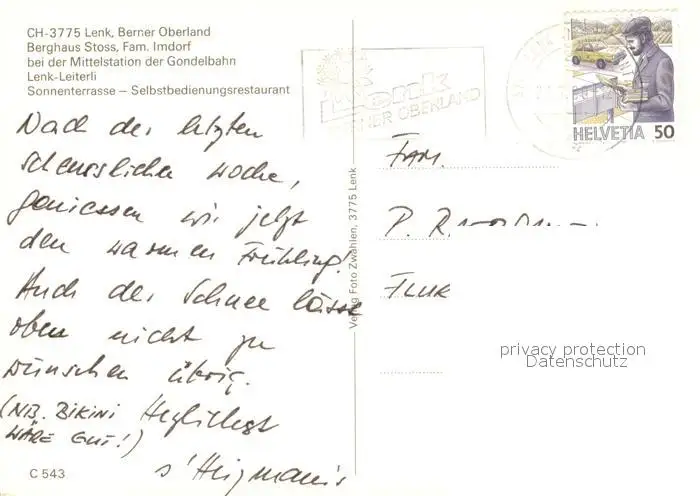 CH-3775 Lenk, Berner Oberland
Berghaus Stoss, Fam. Imdorf
bei der Mittelstation der Gondelbahn
Lenk-Leiterli
Sonnenterrasse – Selbstbedienungsrestaurant
Nach der letzten
scheusslichen Woche,
geniessen wir jetzt
den warmen Frühling!
Auch der Schnee lässt
oben nicht zu
wünschen übrig.
(NB. BIKINI Herzlichst
WÄRE GUT!)
s'
C 543
Verlag Foto Zwahlen, 3775 Lenk
Lenk
BERNER OBERLAND
HELVETIA 50
FAM.
P.
privacy protection
Datenschutz